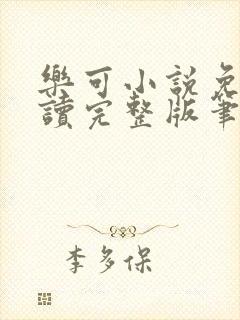 樂可小說免
讀完整版筆
李多保